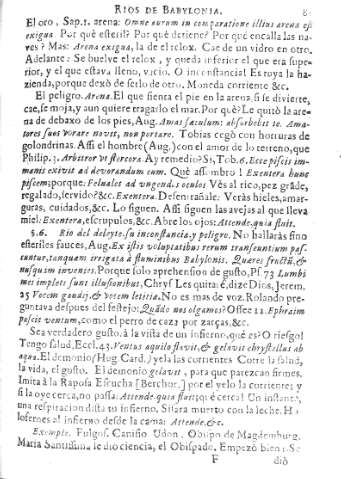 RIOS DE BABYLONIA. 8
El oro, Sap. 7. arena: Omne aurum in comparatione illius arena est
exigua. Por què esteril? Por què detiene? Por què encalla las na-
ves? Mas: Arena exigua, la de el relox. Cae de un vidro en otro.
Adelante: Se buelve el relox, y queda inferior el que era supe-
rior, y el que estava lleno, vacio. O inconstancia! Es tuya la ha-
zienda, porque dexò de serlo de otro. Moneda corriente &c.
El peligro. Arena. El que sienta el pie en la arena, si se divierte,
cae, se moja, y aun quiere tragarlo el mar. Por què? Le quitò la are-
na de debaxo de los pies, Aug. Amas sæculum: absorbebit te. Ama-
tores suos vorare novit, non portare. Tobias cegò con horruras de
golondrinas. Assi el hombre (Aug.) con el amor de lo terreno, que
Philip. 3. Arbitror ut stercora. Ay remedio? Si, Tob. 6. Ecce piscis im-
manis exivit ad devorandum eum. Què assombro! Exentera hunc
piscem; porque: Fel valet ad ungendos oculos Vès al rico, pez grãde,
regalado, servido? &c. Exentera. Desentrañale: Veràs hieles, amar-
guras, cuidados, &c. Lo siguen. Assi siguen las avejas al que lleva
miel: Exentera, escrupulos, &c. Abre los ojos: Attende. quia fluit.
§. 6. Rio del deleyte. su inconstancia, y peligro. No hallaràs sino
esteriles sauces, Aug. Ex istis voluptatibus rerum transeuntium pas-
cuntur, tanquam irrigata à fluminibus Babylonis. Quæres fructũ, &
nusquam invenies. Porque solo aprehension de gusto, Ps. 73 Lumbi
mei impleti sunt illusionibus, Chrys Les quita: è, dize Dios, Jerem.
25 Vocem gaudij, & vocem letitiæ. No es mas de voz. Rolando pre-
guntava despues del festejo: Quãdo nos olgamos? Osee 12. Ephraim
pascit ventum, como el perro de caza por zarças, &c.
Sea verdadero gusto: à la vista de un infierno, què es? O riesgo!
Tengo salud, Eccl. 43. Ventus aquilo flavit, & gelavit chrystallus ab
aqua. El demonio (Hug Card.) yela las corrientes Corre la salud,
la vida, el gusto. El demonio gelavit, para que parezcan firmes.
Imita à la Raposa Escucha [Berchor.] por el yelo la corriente; y
si la oye cerca, no passa: Attende. quia fluit; què cerca! Un instante,
una respiracion dista tu infierno, Sisara muerto con la leche. Ho
lofernes al infierno desde la cama: Attende. &c.
Exemplo. Fulgos. Canisio Udon, Obispo de Magdemburg.
Maria Santissima le dio ciencia, el Obispado. Empezò bien: Se
F diò